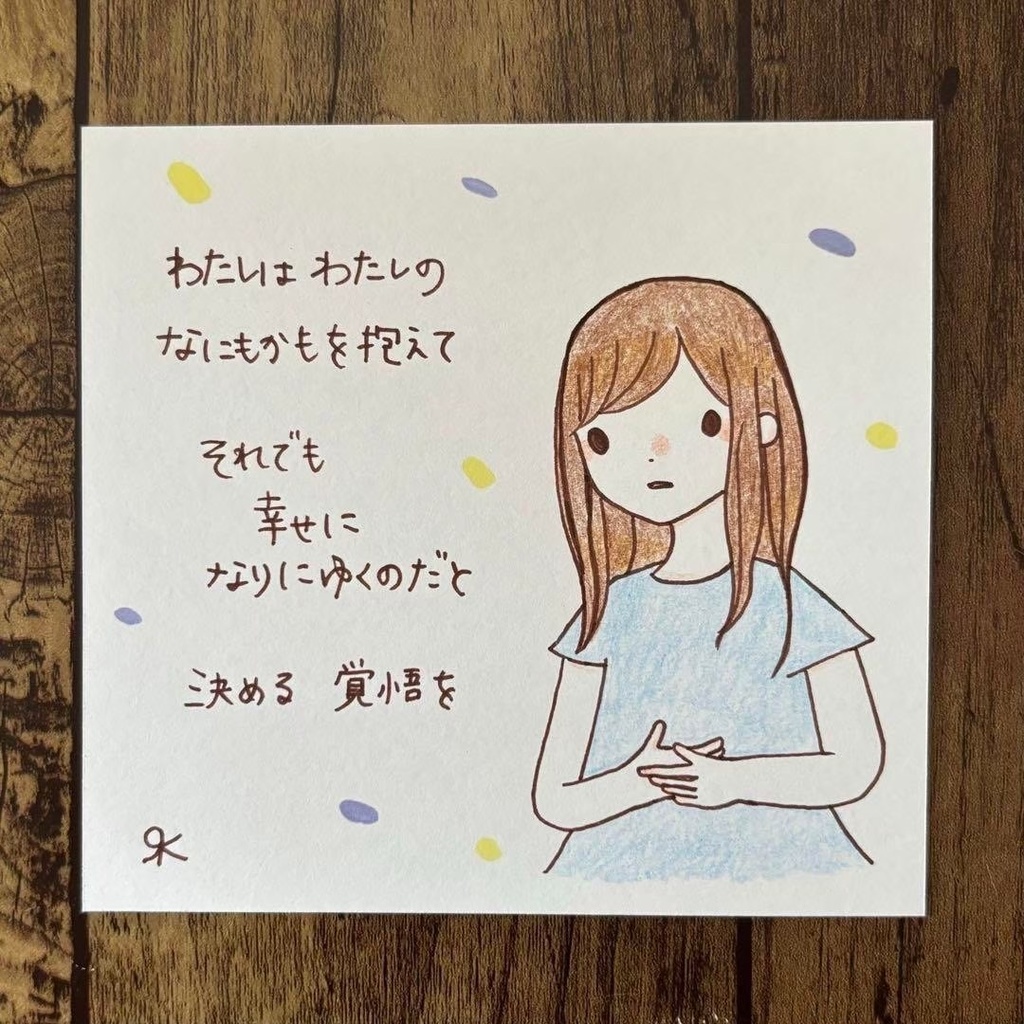 わたしは わたしの
なにもかもを抱えて
それでも
幸せに
なりにゆくのだと
決める 覚悟を